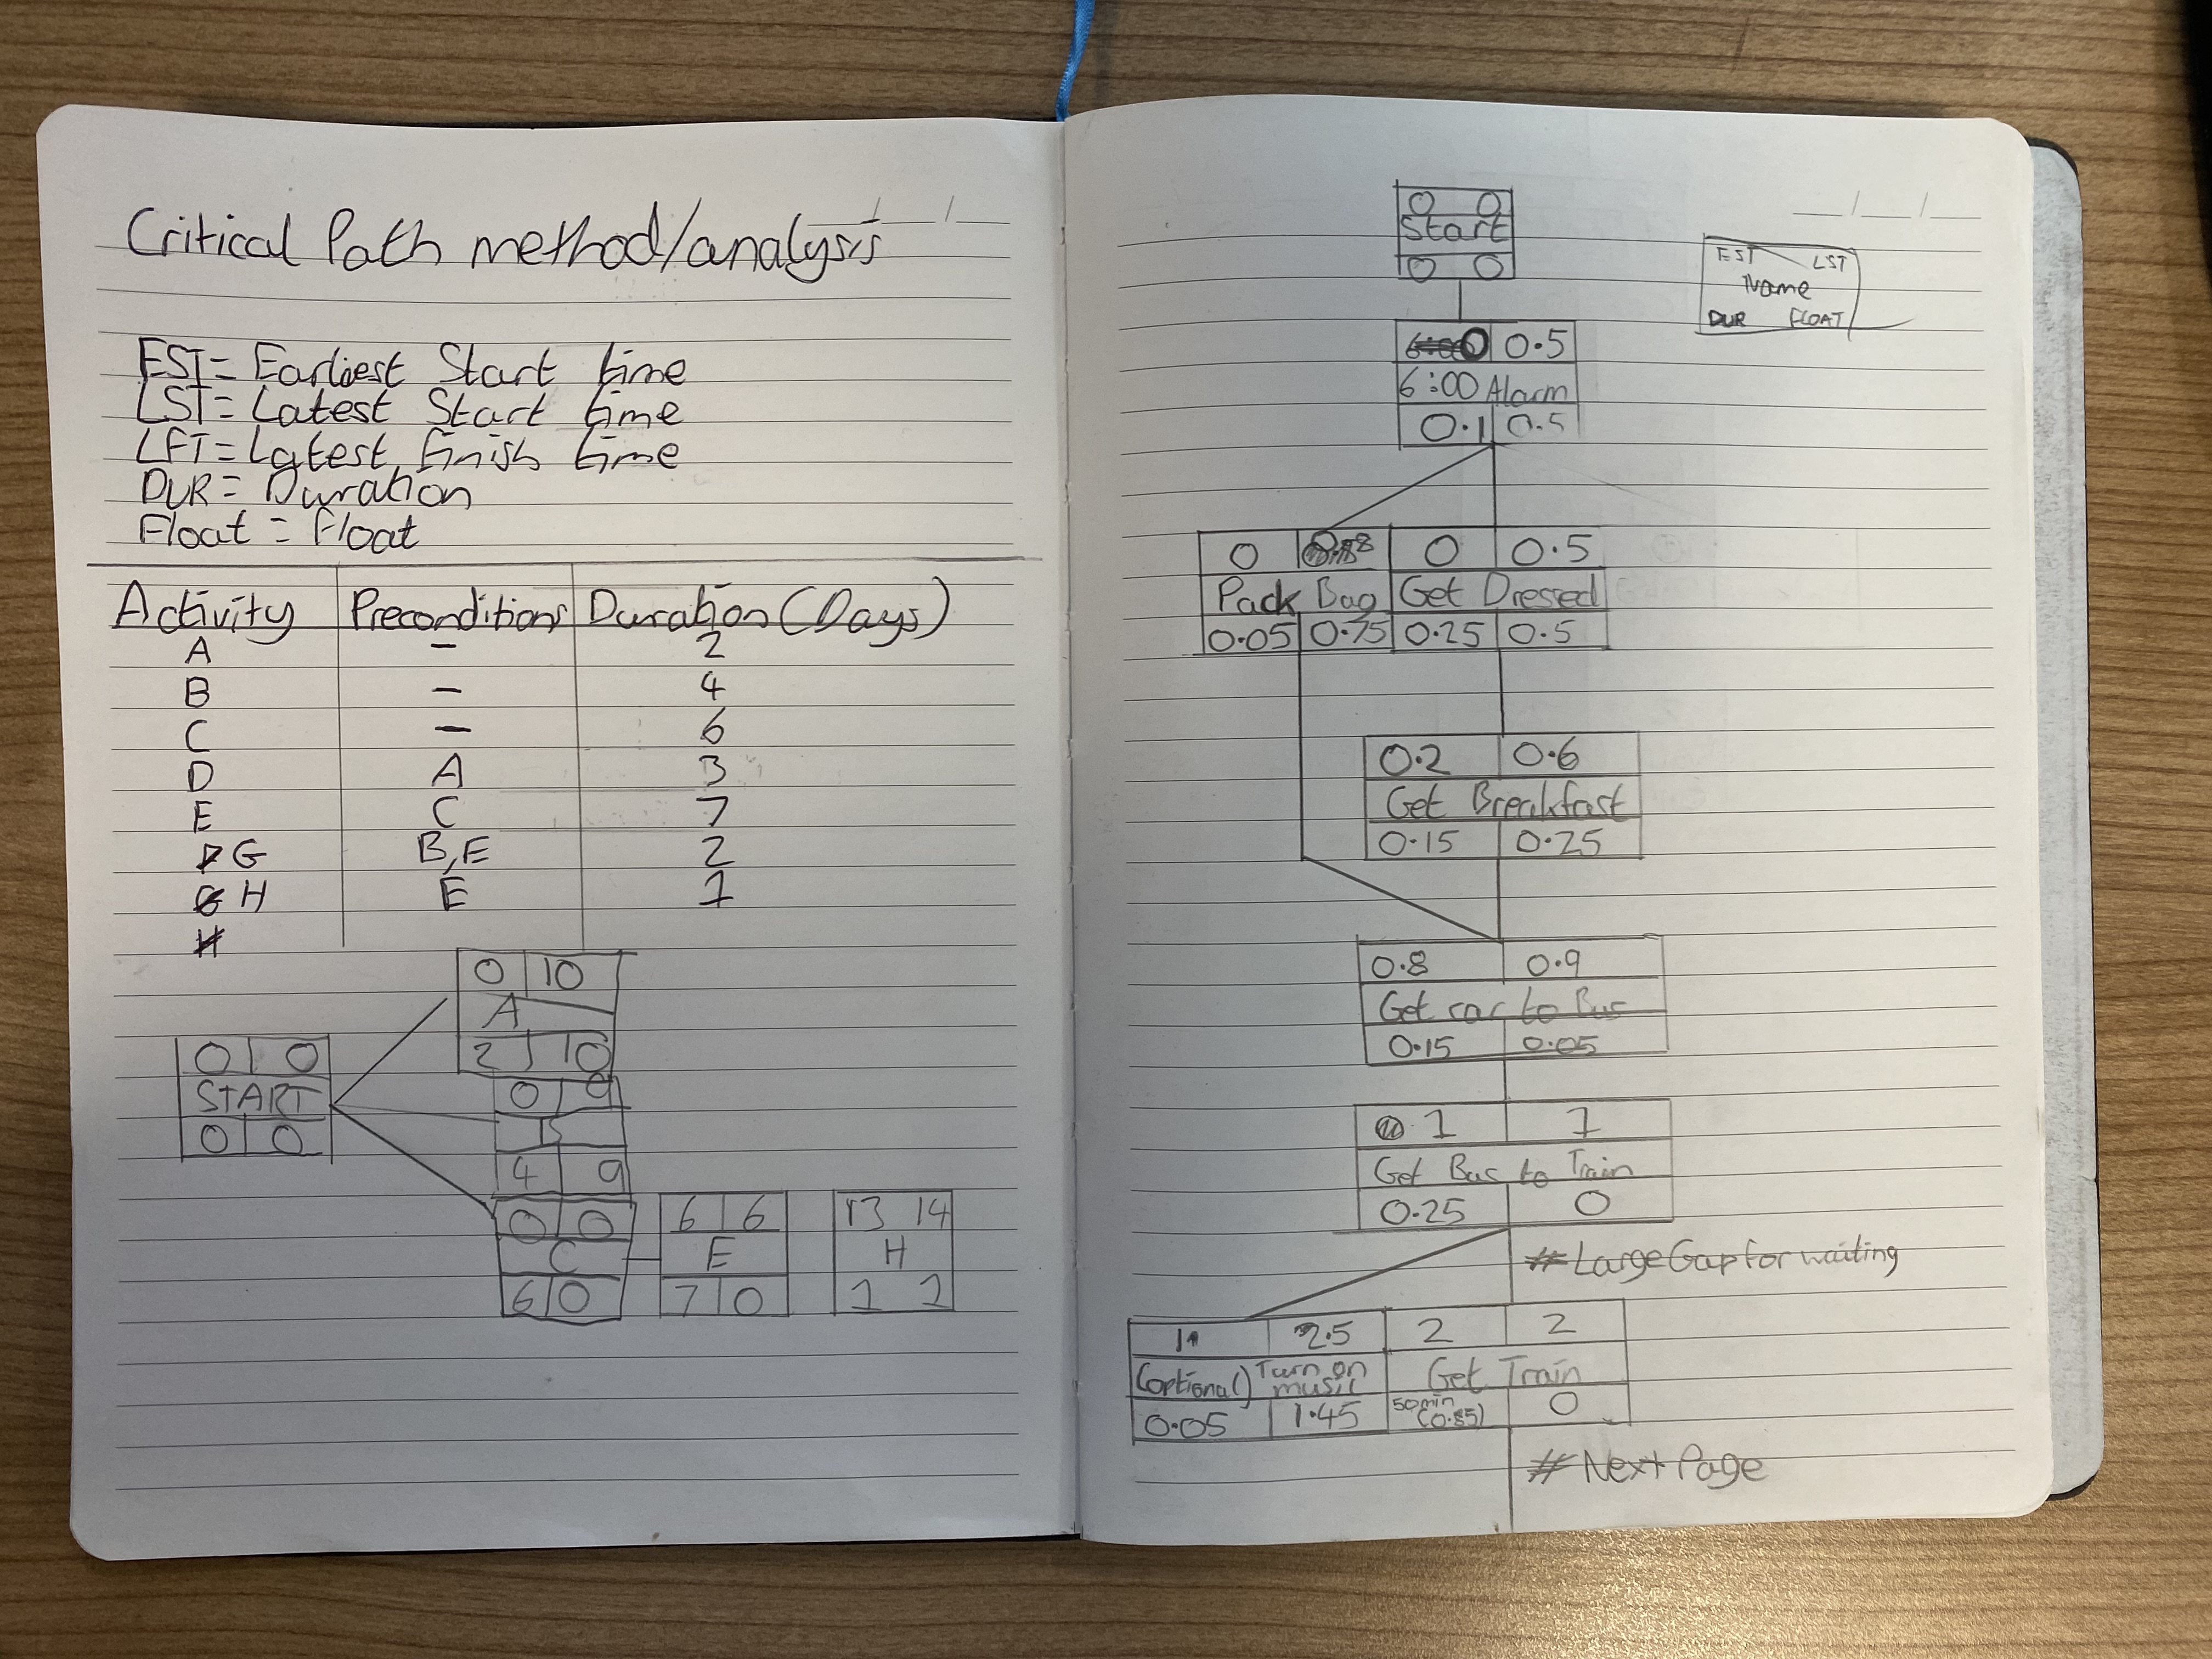 Critical Path method/analysis
EST = Earliest Start time
LST = Latest Start time
LFT = Latest finish time
DUR = Duration
Float = Float
Activity Preconditions Duration (Days)
A - 2
B - 4
C - 6
D A 3
E C 7
G B,E 2
H E 1
0 0
START
0 0
0 10
A
2 10
0 9
B
4 9
0 0
C
6 0
6 6
E
7 0
13 14
H
1 1
0 0
Start
0 0
EST LST
Name
DUR FLOAT
0 0.5
6:00 Alarm
0.1 0.5
0 0.8 0 0.5
Pack Bag Get Dressed
0.05 0.75 0.25 0.5
0.2 0.6
Get Breakfast
0.15 0.25
0.8 0.9
Get car to Bus
0.15 0.05
1 1
Get Bus to Train
0.25 0
#LargeGapforwaiting
1 2.5 2 2
(optional) Turn on music Get Train
0.05 1.45 50min (0.85) 0
#Next Page